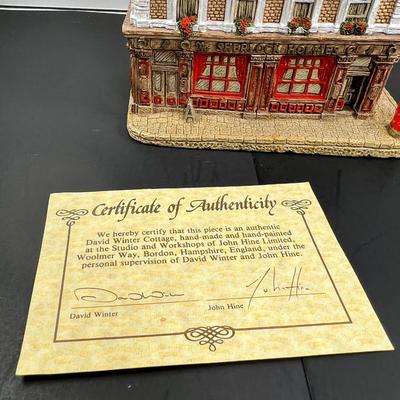 SHERLOCK HOLMES
Certificate of Authenticity
We hereby certify that this piece is an authentic
David Winter Cottage, hand-made and hand-painted
at the Studio and Workshops of John Hine Limited,
Woolmer Way, Bordon, Hampshire, England, under the
personal supervision of David Winter and John Hine.
David Winter
John Hine
David Winter
John Hine